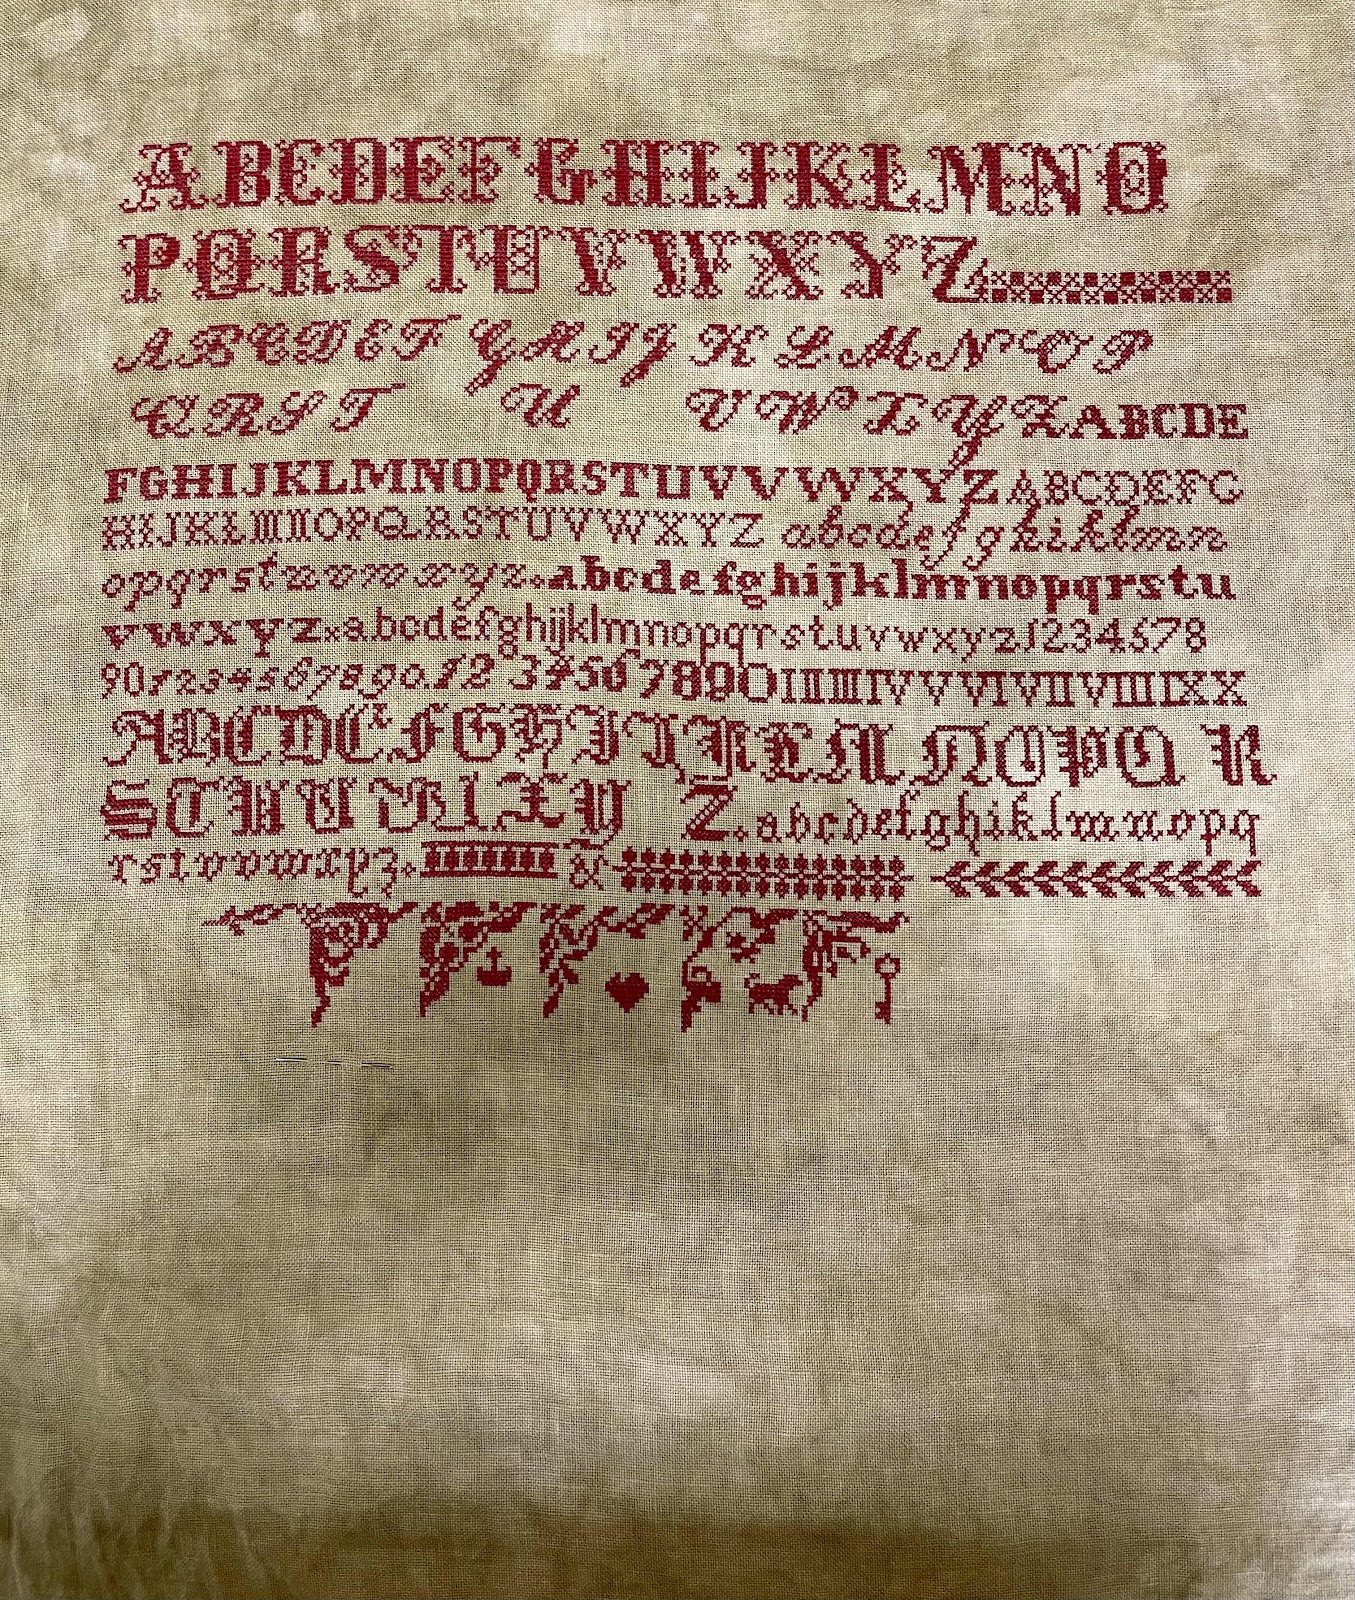 ABCDEFGHIJKLMNO
PQRSTUVWXYZ
ABCDEFGHIJKLMNOP
QRSTUVWXYZABCDE
FGHIJKLMNOPQRSTUVVWXYZABCDEFG
HIJKLMNOPQRSTUVWXYZabcdefghiklmn
opqrstuvwxyz.abcdefghijklmnopqrstu
vwxyzxabcdefghijklmnopqrstuvwxyz12345678
901234567890.1234567890IIIIIIIVVVIVIIVIIIIXX
ABCDEFGHIJKLMNOPQR
STUVWXYZ.abcdefghiklmnopq
rstuvwxyz.&